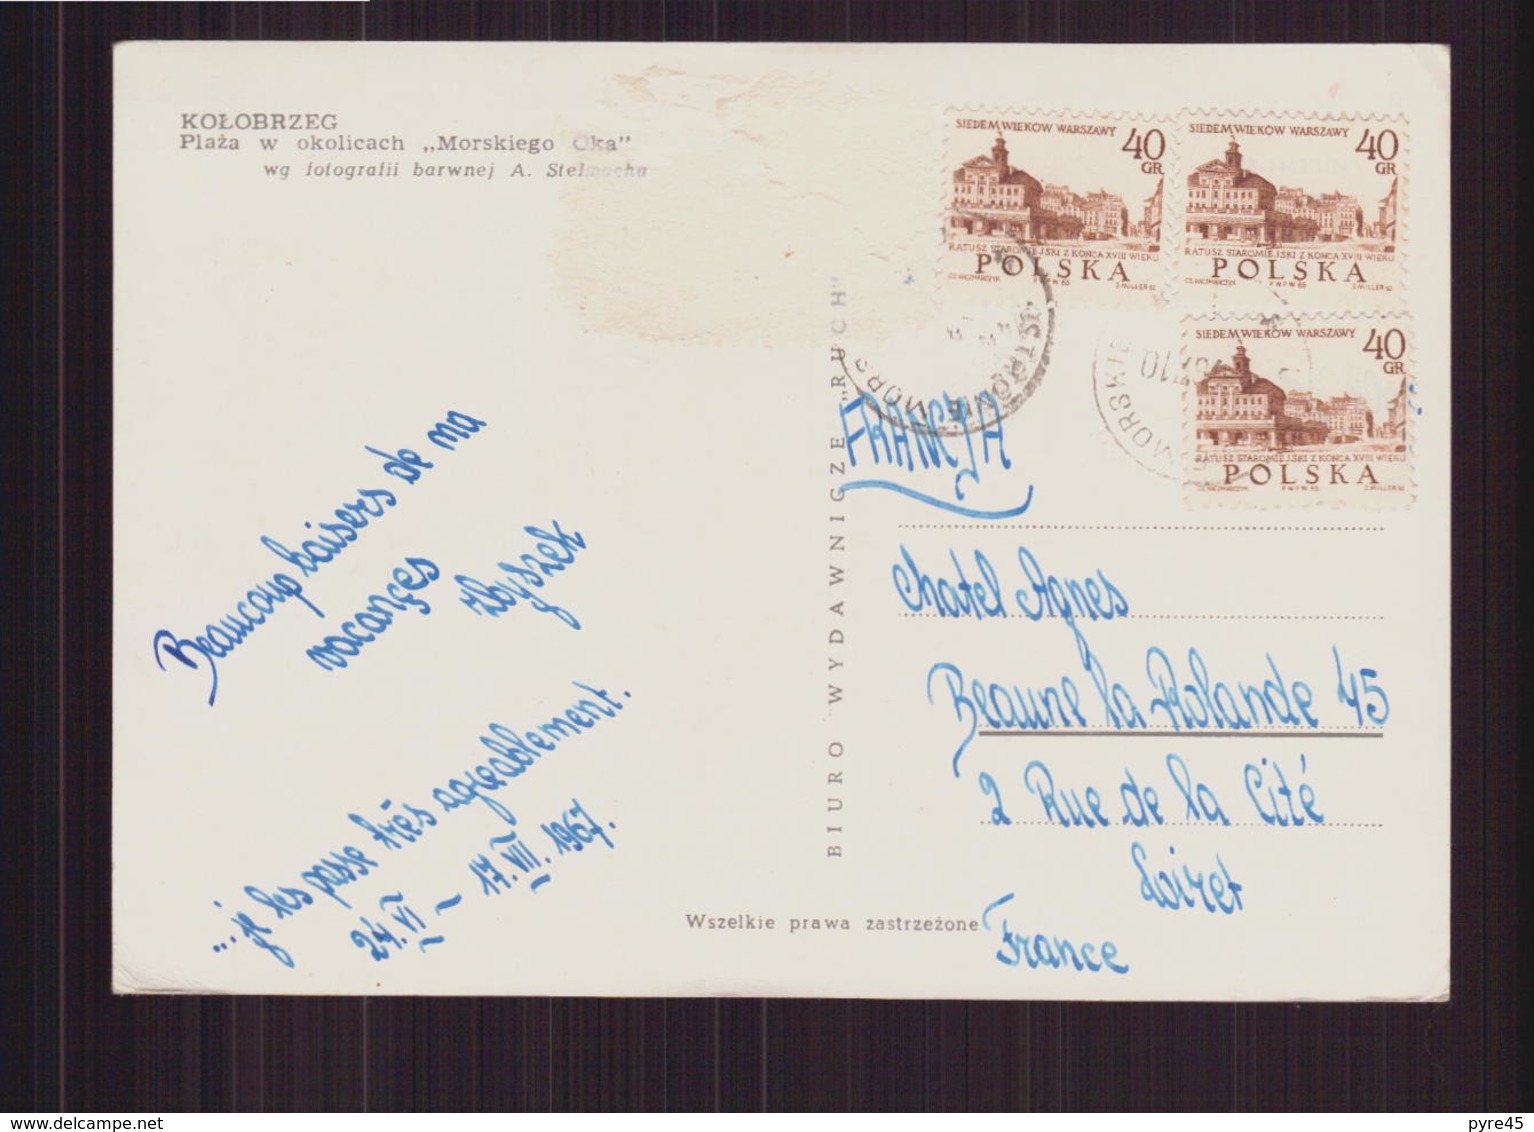 KOŁOBRZEG
Plaża w okolicach „Morskiego Oka"
wg fotografii barwnej A. Stelmacha
SIEDEM WIEKÓW WARSZAWY
40 GR
RATUSZ STAROMIEJSKI Z KOŃCA XVIII WIEKU
POLSKA
CZ. KACZMARCZYK PWPW 65 J. MILLER SC
SIEDEM WIEKÓW WARSZAWY
40 GR
RATUSZ STAROMIEJSKI Z KOŃCA XVIII WIEKU
POLSKA
CZ. KACZMARCZYK PWPW 65 J. MILLER SC
SIEDEM WIEKÓW WARSZAWY
40 GR
RATUSZ STAROMIEJSKI Z KOŃCA XVIII WIEKU
POLSKA
CZ. KACZMARCZYK PWPW 65 J. MILLER SC
USTRONIE MORS
MORSKIE
BIURO WYDAWNICZE „RUCH"
FRANCJA
Beaucoup baisers de ma
vacançes
Zbyszek
...je les passe trēs agréablement.
24.VI – 17.VII.1967.
Chatel Agnes
Beaune la Rolande 45
2 Rue de la Cité
Loiret
France
Wszelkie prawa zastrzeżone
delcampe.net
pyre45